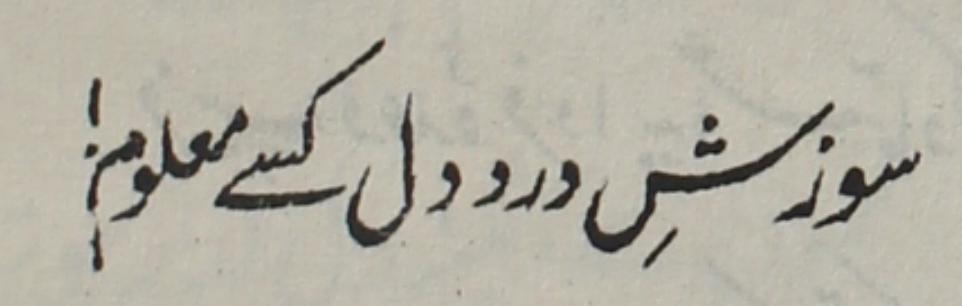 سوزشِ درد دل کسے معلوم!